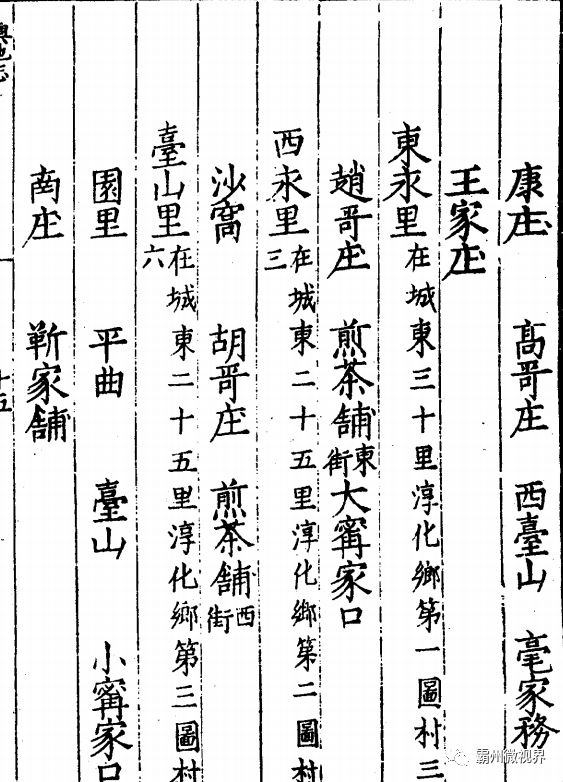 康庄　高哥庄　西臺山　毫家務
王家庄
東永里在城東三十里淳化鄉第一圖村三
趙哥庄　煎茶舖東街　大寗家口
西永里在城東二十五里淳化鄉第二圖村三
沙窩　胡哥庄　煎茶舖西街
臺山里在城東二十五里淳化鄉第三圖村六
園里　平曲　臺山　小寗家口
南庄　靳家舖
霸州微视界